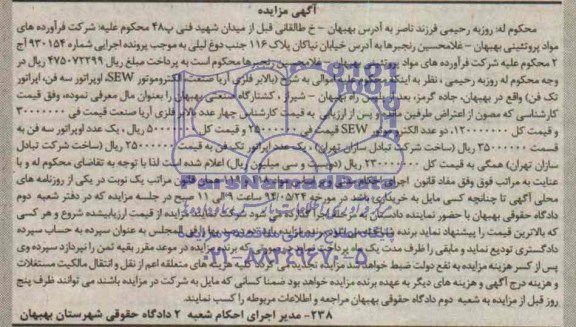 آگهی مزایده
محکوم له: روزبه رحیمی فرزند ناصر به آدرس بهبهان – خ طالقانی قبل از میدان شهید فنی پ۴۸ محکوم علیه: شرکت فرآورده های
مواد پروتئینی بهبهان – غلامحسین رنجبرها به آدرس خیابان نیاکان پلاک ۱۱۶ جنب دوغ لیلی به موجب پرونده اجرایی شماره ۹۳۰۱۵۴ آج
۲ محکوم علیه شرکت فرآورده های مواد پروتئینی بهبهان – غلامحسین رنجبرها محکوم است به پرداخت مبلغ ریال ۴۷۵۰۷۲۲۹۹ ریال در
وجه محکوم له روزبه رحیمی ، نظر به اینکه اموالی به شرح (بالابر فلزی آریا صنعت الکتروموتور SEW، اوپراتور سه فن، اپراتور
تک فن) واقع در بهبهان، جاده گرمز، راه بهبهان – شیراز ، کشتارگاه صنعتی بهبهان را بعنوان مال معرفی نموده، وفق قیمت
کارشناسی که مصون از اعتراض طرفین و پس از ارزیابی به قیمت کارشناس چهار عدد بالابر فلزی آریا صنعت قیمت فی ۳۰۰۰۰۰۰۰
و قیمت کل ۱۲۰۰۰۰۰۰۰، دو عدد الکتروموتور SEW قیمت فی و قیمت کل ریال ، یک عدد اوپراتور سه فن به
قسمت ۳۵۰۰۰۰۰۰ ریال (ساخت شرکت تبادل سازان تهران) ، یک عدد اپراتور تک فن به قیمت ۲۵۰۰۰۰۰۰ ریال (ساخت شرکت تبادل
سازان تهران) همگی به قیمت کل ۲۳۰۰۰۰۰۰۰ ریال (دویست و سی میلیون ریال) اعلام شده است لذا با توجه به تقاضای محکوم له و با
عنایت به مراتب فوق وفق مفاد قانون اجرای احکام قانون مراتب یک نوبت در یکی از روزنامه های
محلی آگهی تا چنانچه کسی مایل به خریداری باشد در مورخه ۹۴/۰۵/۲۴ ساعت ۹ الی ۱۱ صبح در جلسه مزایده که در دفتر شعبه دوم
دادگاه حقوقی بهبهان با حضور نماینده دادستان شرکت نماید مزایده از قیمت ارزیابیشده شروع و هر کسی
که بالاترین قیمت را پیشنهاد نماید برنده فی المجلس به عنوان سپرده به حساب سپرده
دادگستری تودیع نماید و مابقی را ظرف مدت یک ماه پرداخت نماید در صورتی که برنده مزایده در موعد مقرر بقیه ثمن را نپردازد سپرده وی
پس از کسر هزینه مزایده به نفع دولت ضبط خواهد شد مزایده تجدید می گردد کلیه هزینه های متعلقه اعم از نقل و انتقال مالکیت مستغلات
و هزینه درج آگهی و هزینه های دیگر به عهده برنده مزایده خواهد بود ضمنا کسانی که مایل به شرکت در مزایده باشند می توانند ظرف پنج
روز قبل از مزایده به شعبه دوم دادگاه حقوقی بهبهان مراجعه و اطلاعات مربوطه را کسب نمایند.
۲۳۸- مدیر اجرای احکام شعبه ۲ دادگاه حقوقی شهرستان بهبهان
ParsNamadData
۰۲۱-۸۸۳۴۹۶۷۰-۵